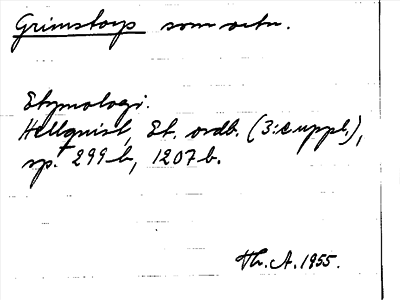 Grimstorp som ortn.
Etymologi.
Hellquist, Et. ordb. (3:e uppl.),
sp. 299 b, 1207 b.
Th. A. 1955.